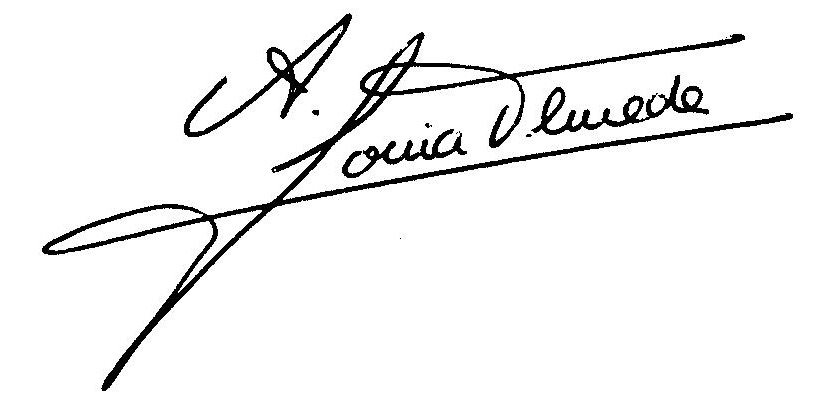 A. Sonia Olmeda